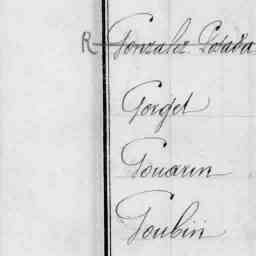 R Gonzalez Posada
Gorget
Gouarin
Goubin